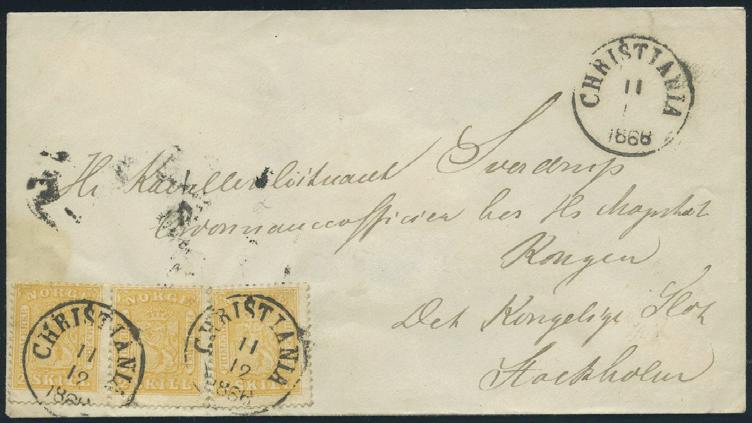 CHRISTIANIA
11
1868
Hr Kavalleriløitnant Sverdrup
Ordonnanceofficier hos Hs Majestæt
Kongen
Det Kongelige Slot
Stockholm
NORGE
SKILL
CHRISTIANIA
11
12
1868
NORGE
SKILL
NORGE
SKILL
CHRISTIANIA
11
12
1868